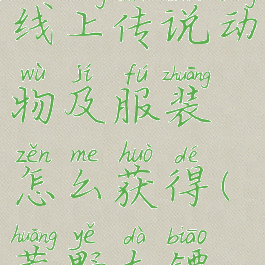 线上传说动
wù jí fú zhuāng
物及服装
zěn me huò dé
怎么获得(
huāng yě dà biāo
荒野大镖